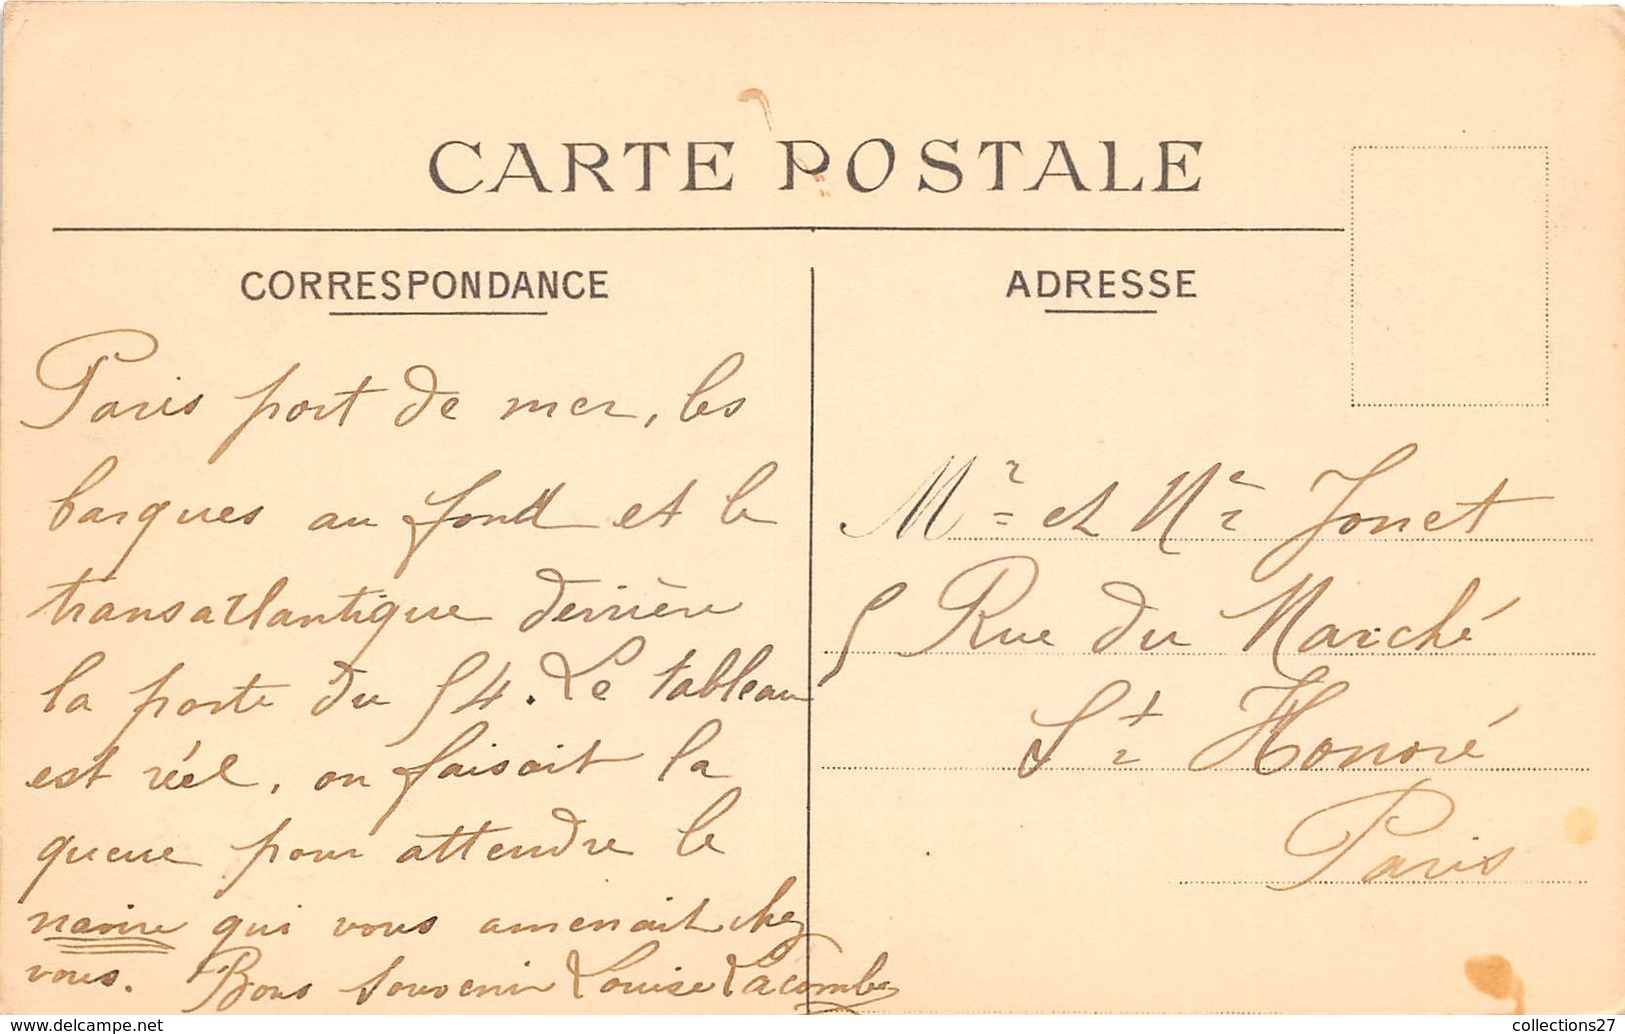 CARTE POSTALE
CORRESPONDANCE
Paris port de mer, les
barques au fond et le
transatlantique derrière
la porte du 54. Le tableau
est réel, on faisait la
queue pour attendre le
navire qui vous amenait chez
vous. Bons souvenir Louise Lacombe
ADRESSE
Mr et Me Jonet
5 Rue du Marché
St Honoré
Paris
delcampe.net
collections27